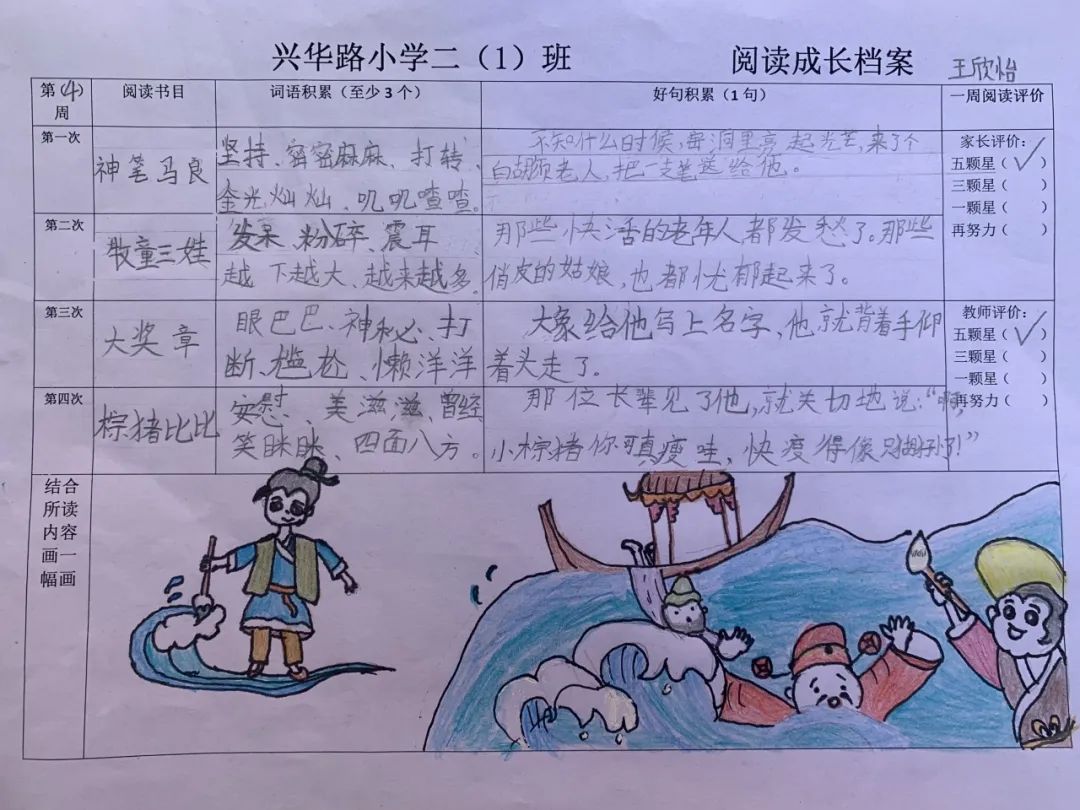 兴华路小学二（1）班 阅读成长档案 王欣怡
第(4)周 阅读书目 词语积累（至少3个） 好句积累（1句） 一周阅读评价
第一次
神笔马良
坚持、密密麻麻、打转、
金光灿灿、叽叽喳喳。
不知什么时候,每洞里亮起光芒,来了个
白胡须老人,把一支笔送给他。
家长评价：
五颗星（✓）
三颗星（ ）
一颗星（ ）
再努力（ ）
第二次
牧童三姓
发呆、粉碎、震耳
越下越大、越来越多。
那些快活的老年人都发愁了。那些
俏皮的姑娘,也都忧郁起来了。
第三次
大奖章
眼巴巴、神秘、打
断、尴尬、懒洋洋
大象给他写上名字,他就背着手仰
着头走了。
教师评价：
五颗星（✓）
三颗星（ ）
一颗星（ ）
再努力（ ）
第四次
棕猪比比
安慰、美滋滋、曾经
笑眯眯、四面八方。
那位长辈见了他,就关切地说:“啊,
小棕猪你可真瘦哇,快瘦得像只猴子了!”
结合
所读
内容
画一
幅画